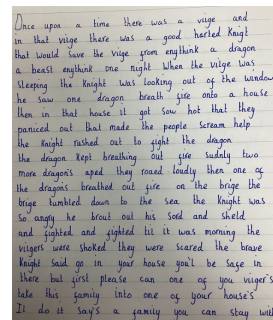 Once upon a time there was a vilge and
in that vilge there was a good harted Knigt
that would save the vilge from engthink a dragon
a beast engthink one night When the vilge was
sleeping the Knight was looking out of the window
he saw one dragon breath fire onto a house
then in that house it got sow hot that they
paniced out that made the people scream help
the Knight rushed out to fight the dragon
the dragon Kept breathing out fire sudnly two
more dragon's aped they roaed loudly then one of
the dragons breathed out fire on the brige the
brige tumbled down to the sea the Knight was
So angry he brout out his Sord and sheld
and fighted and fighted til it was morning the
vilgers were shoked they were scared the brave
Knight said go in your house you'll be Safe in
there but first please can one of you vilger's
take this family into one of your house's
I'll do it Say's a family you can stay with